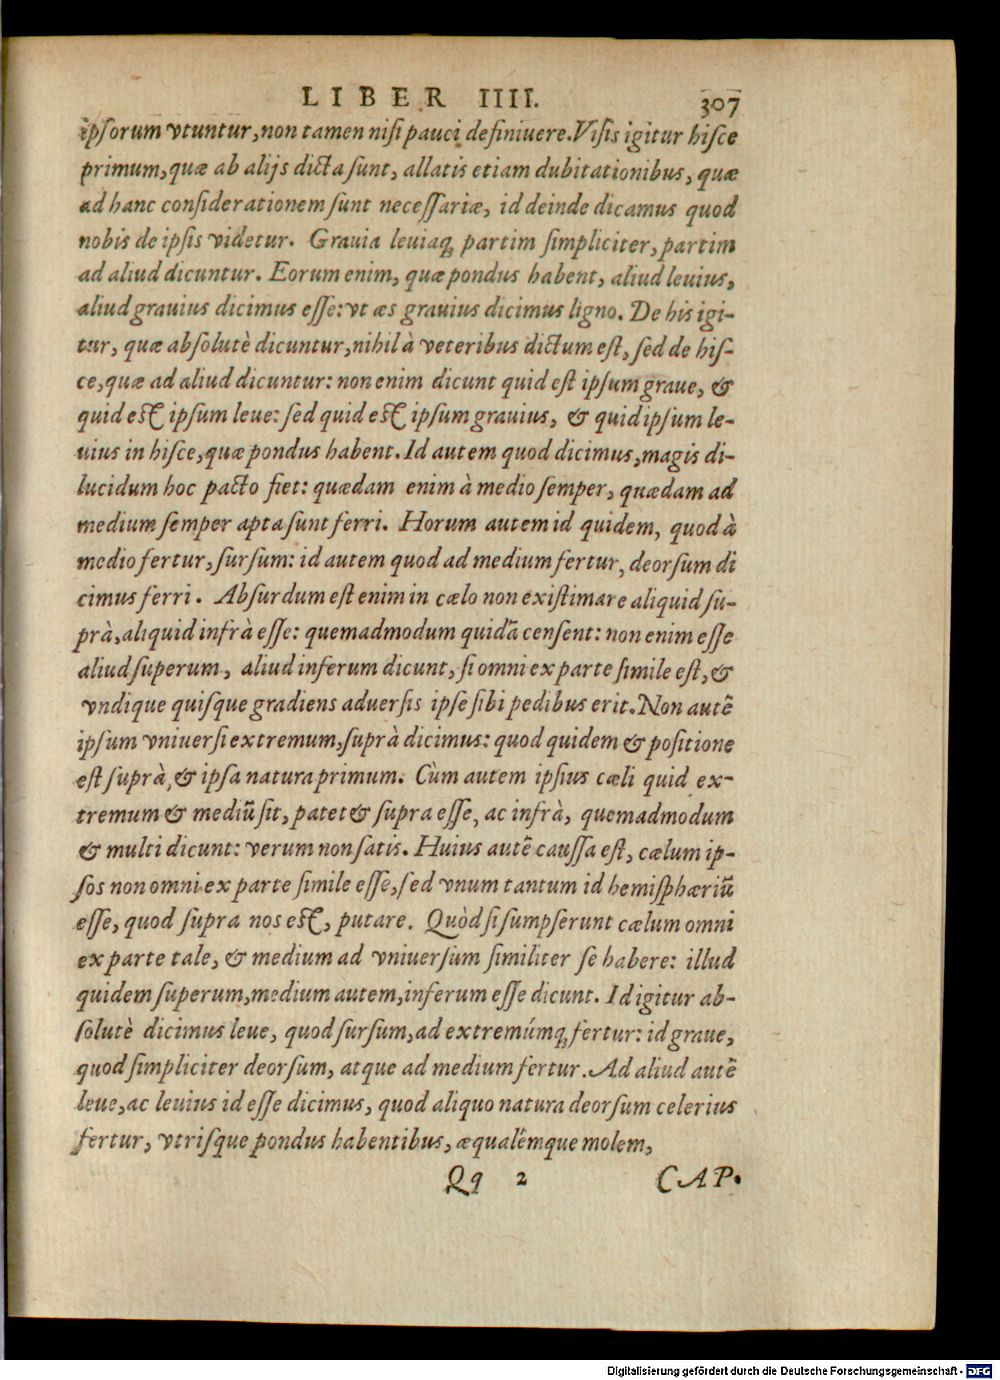 LIBER IIII. 307
ipſorum vtuntur, non tamen niſi pauci definiuere. Viſis igitur hiſce
primum, quæ ab alijs dicta ſunt, allatis etiam dubitationibus, quæ
ad hanc conſiderationem ſunt neceſſariæ, id deinde dicamus quod
nobis de ipſis videtur. Grauia leuiaq; partim ſimpliciter, partim
ad aliud dicuntur. Eorum enim, quæ pondus habent, aliud leuius,
aliud grauius dicimus eſſe: vt æs grauius dicimus ligno. De his igi-
tur, quæ abſolutè dicuntur, nihil à veteribus dictum eſt, ſed de hiſ-
ce, quæ ad aliud dicuntur: non enim dicunt quid eſt ipſum graue, &
quid eſt ipſum leue: ſed quid eſt ipſum grauius, & quid ipſum le-
uius in hiſce, quæ pondus habent. Id autem quod dicimus, magis di-
lucidum hoc pacto fiet: quædam enim à medio ſemper, quædam ad
medium ſemper apta ſunt ferri. Horum autem id quidem, quod à
medio fertur, ſurſum: id autem quod ad medium fertur, deorſum di
cimus ferri. Abſurdum eſt enim in cælo non exiſtimare aliquid ſu-
prà, aliquid infrà eſſe: quemadmodum quidã cenſent: non enim eſſe
aliud ſuperum, aliud inferum dicunt, ſi omni ex parte ſimile eſt, &
vndique quiſque gradiens aduerſis ipſe ſibi pedibus erit. Non autẽ
ipſum vniuerſi extremum, ſuprà dicimus: quod quidem & poſitione
eſt ſuprà, & ipſa natura primum. Cùm autem ipſius cæli quid ex-
tremum & mediũ ſit, patet & ſupra eſſe, ac infrà, quemadmodum
& multi dicunt: verum non ſatis. Huius autẽ cauſſa eſt, cælum ip-
ſos non omni ex parte ſimile eſſe, ſed vnum tantum id hemiſphæriũ
eſſe, quod ſupra nos eſt, putare. Quòd ſi ſumpſerunt cælum omni
ex parte tale, & medium ad vniuerſum ſimiliter ſe habere: illud
quidem ſuperum, medium autem, inferum eſſe dicunt. Id igitur ab-
ſolutè dicimus leue, quod ſurſum, ad extremúmq; fertur: id graue,
quod ſimpliciter deorſum, atque ad medium fertur. Ad aliud autẽ
leue, ac leuius id eſſe dicimus, quod aliquo natura deorſum celerius
fertur, vtriſque pondus habentibus, æqualémque molem,
Qq 2 CAP.
Digitalisierung gefördert durch die Deutsche Forschungsgemeinschaft - DFG